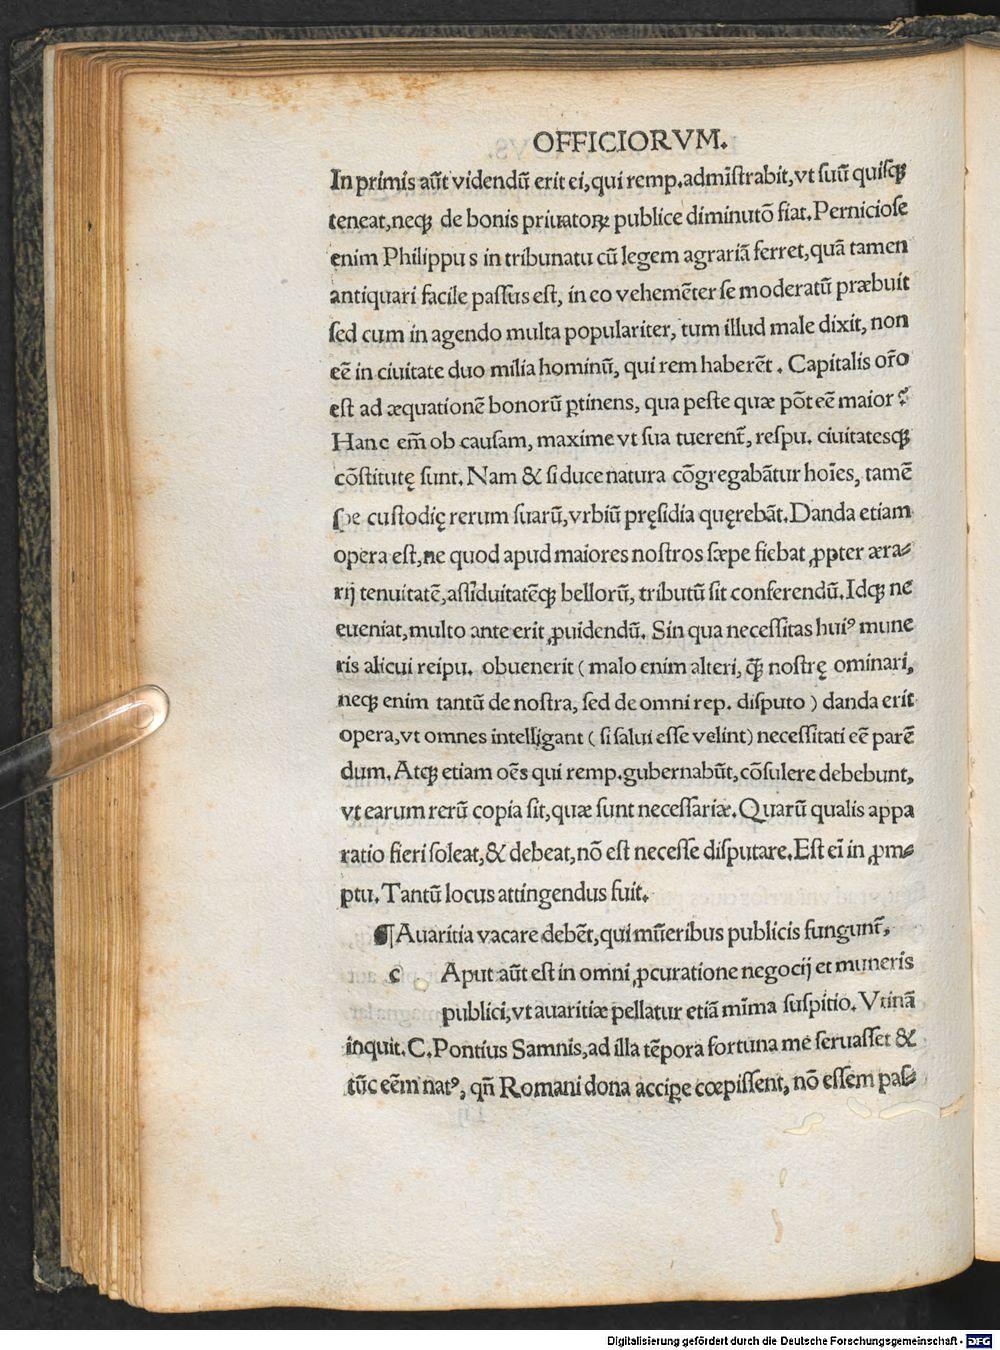 OFFICIORVM.
In primis aūt videndū erit ei, qui remp. admīstrabit, vt suū quisqꝫ
teneat, neqꝫ de bonis priuatoꝝ publice diminutō fiat. Perniciose
enim Philippus in tribunatu cū legem agrariā ferret, quā tamen
antiquari facile passus est, in eo vehemēter se moderatū præbuit
sed cum in agendo multa populariter, tum illud male dixit, non
eē in ciuitate duo milia hominū, qui rem haberēt. Capitalis or̄o
est ad æquationē bonorū ꝑtinens, qua peste quæ pōt eē maior?
Hanc em̄ ob causam, maxime vt sua tuerent̄, respu. ciuitatesqꝫ
cōstitutę sunt. Nam & si duce natura cōgregabātur hoīes, tamē
spe custodię rerum suarū, vrbiū pręsidia quęrebāt. Danda etiam
opera est, ne quod apud maiores nostros sæpe fiebat ꝓpter æra-
rij tenuitatē, assiduitatēqꝫ bellorū, tributū sit conferendū. Idqꝫ ne
eueniat, multo ante erit ꝓuidendū. Sin qua necessitas huiꝰ mune
ris alicui reipu. obuenerit ( malo enim alteri, qꝫ̄ nostrę ominari,
neqꝫ enim tantū de nostra, sed de omni rep. disputo ) danda erit
opera, vt omnes intelligant ( si salui esse velint) necessitati eē parē
dum. Atqꝫ etiam oēs qui remp. gubernabūt, cōsulere debebunt,
vt earum rerū copia sit, quæ sunt necessariæ. Quarū qualis appa
ratio fieri soleat, & debeat, nō est necesse disputare. Est eī in ꝓm-
ptu. Tantū locus attingendus fuit.
¶ Auaritia vacare debēt, qui mūeribus publicis fungunt̄.
c Aput aūt est in omni ꝓcuratione negocij et muneris
publici, vt auaritiæ pellatur etiā mīma suspitio. Vtinā
inquit. C. Pontius Samnis, ad illa tēpora fortuna me seruasset &
tūc eēm natꝰ, qn̄ Romani dona acciꝑe cœpissent, nō essem pas-
Digitalisierung gefördert durch die Deutsche Forschungsgemeinschaft - DFG